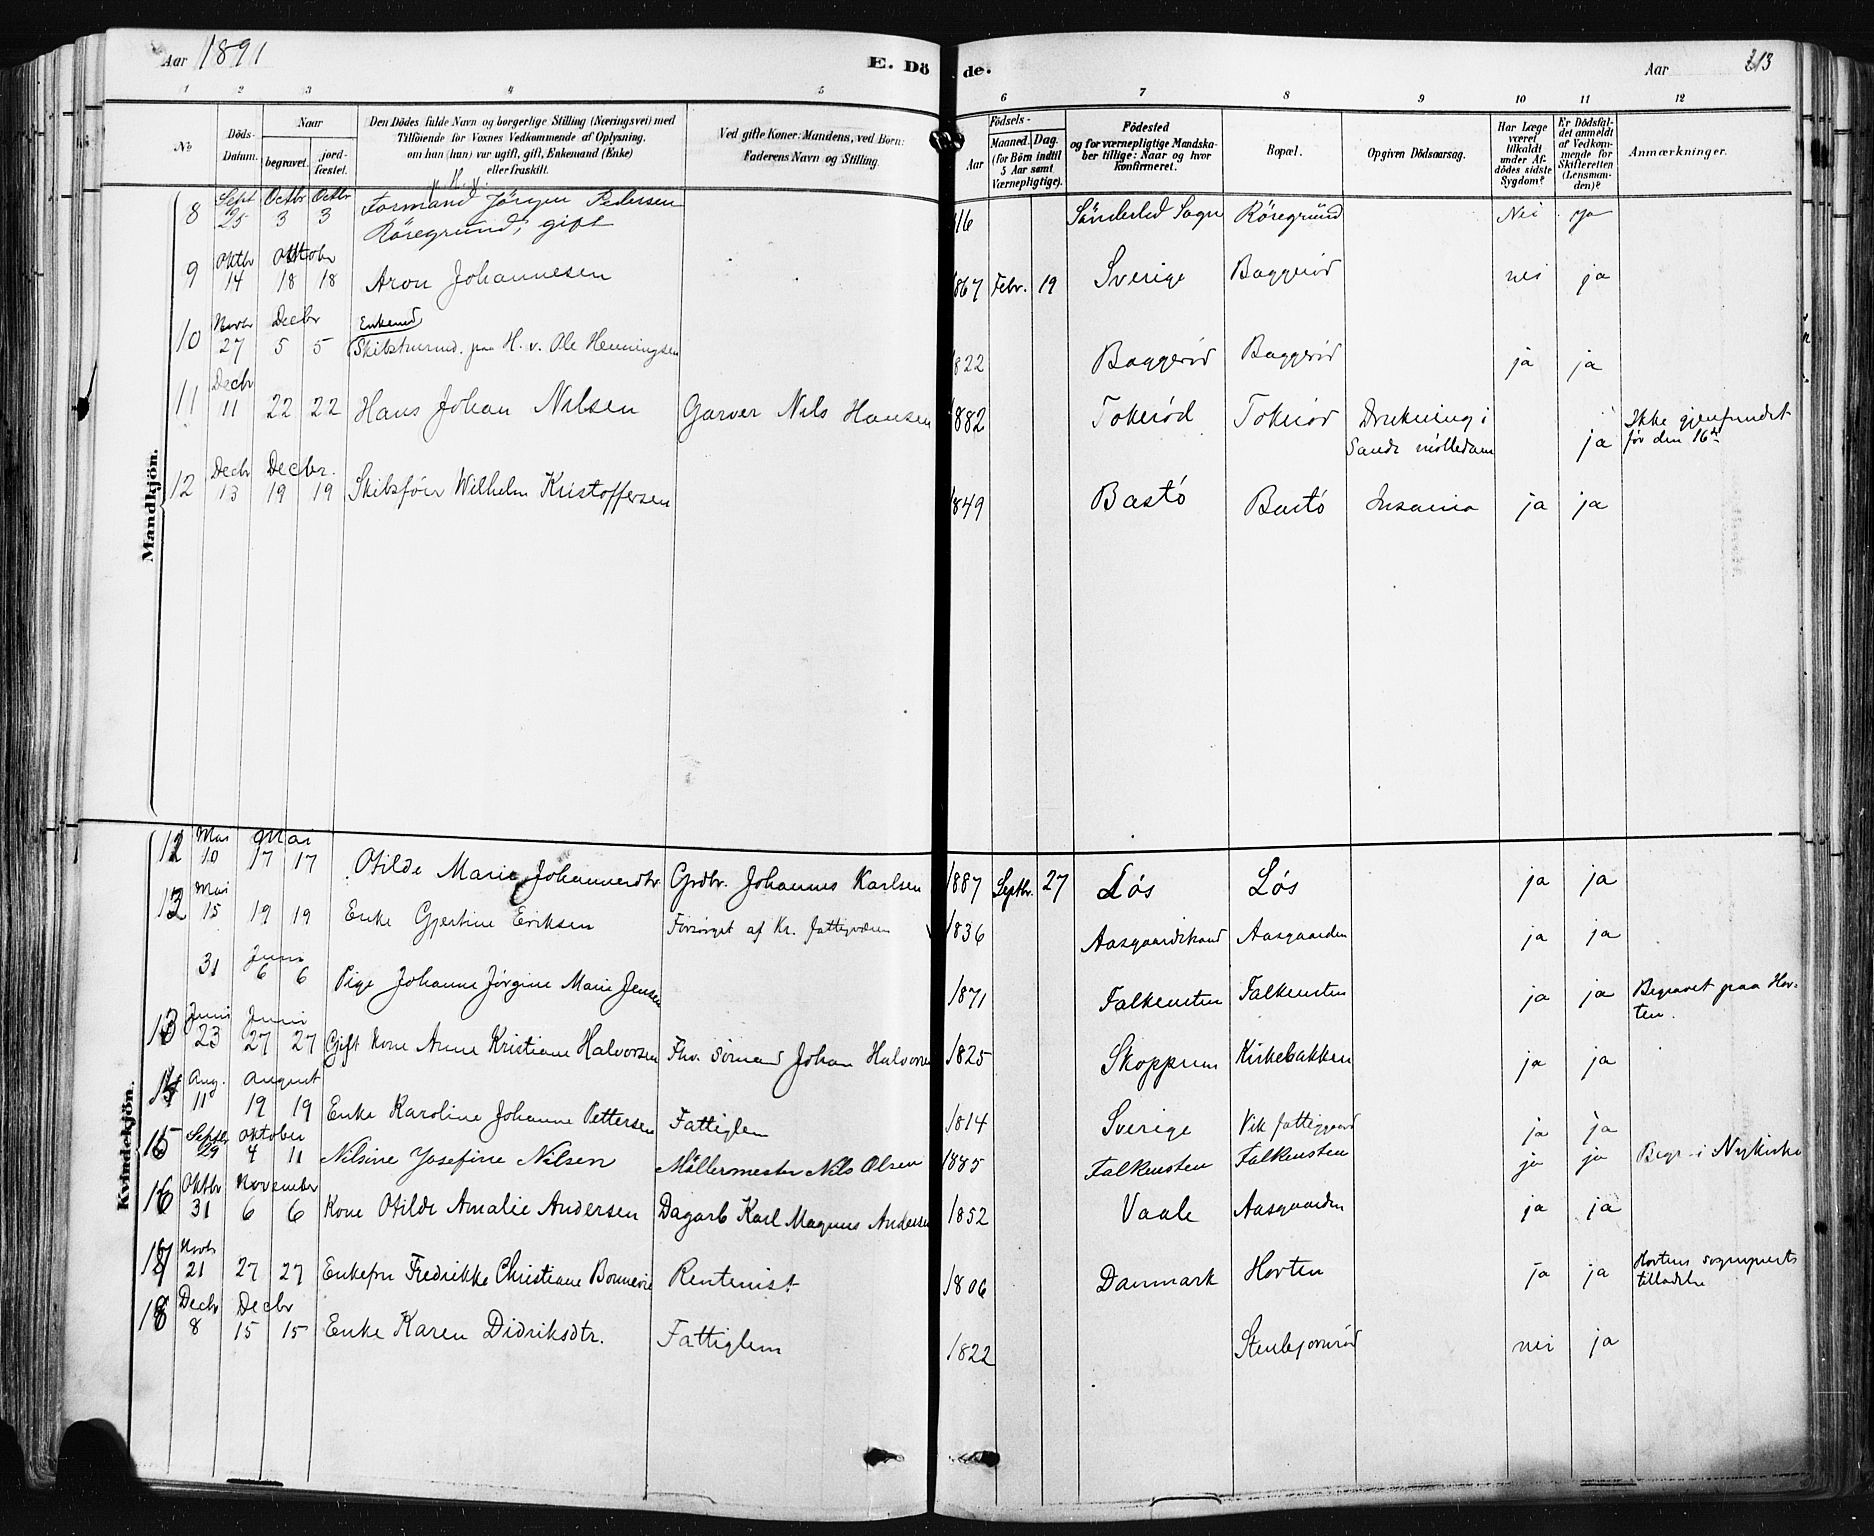 Aar 1891 E. Dö de. Aar 213
1 2 3 4 5 6 7 8 9 10 11 12
No Döds-Datum. Naar begravet. jord-fæstet. Den Dödes fulde Navn og borgerlige Stilling (Næringsvei) med Tilföiende for Voxnes Vedkommende af Oplysning, om han (hun) var ugift, gift, Enkemand (Enke) eller fraskilt. Ved gifte Koner: Mandens, ved Börn: Faderens Navn og Stilling. Födsels- Aar Maaned. Dag. (for Börn indtil 5 Aar samt Værnepligtige). Födested og for værnepligtige Mandskaber tillige: Naar og hvor Konfirmeret. Bopæl. Opgiven Dödsaarsag. Har Læge været tilkaldt under Afdödes sidste Sygdom? Er Dödsfaldet anmeldt af Vedkommende for Skifteretten (Lensmanden)? Anmærkninger.
Mandkjön.
8 Sept 25 Octbr 3 Octbr 3 Formand Jörgen Pedersen
Röregrund, gift 16 Sönderled Sogn Röregrund Nei ja
9 Oktbr 14 Oktober 18 18 Aron Johannesen 867 Febr. 19 Sverige Baggerød nei ja
10 Novbr 27 Decbr 5 5 Enkemd
Skibstmrmd. paa H. v. Ole Henningsen 822 Baggerød Baggerød ja ja
11 Decbr 11 22 22 Hans Johan Nilsen Garver Nils Hansen 882 Tokerød Tokerød Drukning i
Sande mølledam ja Ikke gjenfundet
før den 16de
12 Decbr 13 Decbr. 19 19 Skibsfører Wilhelm Kristoffersen 1849 Bastö Bastö Insania ja ja
Kvindekjön.
12 Mai 10 Mai 17 17 Otilde Marie Johannesdtr. Grdbr. Johannes Karlsen 1887 Septbr. 27 Løs Løs ja ja
13 Mai 15 19 19 Enke Gjertine Eriksen Forsörget af Kr. fattigvæsen 1836 Aasgaardstrand Aasgaarden ja ja
31 Juni 6 6 Pige Johanne Jørgine Marie Jensen 1871 Falkensten Falkensten ja ja Begravet paa Hor-
ten.
13 Juni 23 Juni 27 27 Gift Kone Anne Kristiane Halvorsen Fhv. sömand Johan Halvorsen 1825 Skoppum Kirkebakken ja ja
14 Aug. 11 August 19 19 Enke Karoline Johanne Pettersen Fattiglem 1814 Sverige Vik fattiggaard ja ja
15 Septbr 29 Oktober 4 11 Nilsine Josefine Nilsen Møllermester Nils Olsen 1885 Falkensten Falkensten ja ja Begr. i Nykirke
16 Oktbr 31 November 6 6 Kone Otilde Amalie Andersen Dagarb Karl Magnus Andersen 1852 Vaale Aasgaarden ja ja
17 Novbr 21 27 27 Enkefru Fredrikke Christiane Bonnevie Rentenist 1806 Danmark Horten ja ja Hortens sogneprests
tilladelse
18 Decbr 8 Decbr 15 15 Enke Karen Didriksdtr. Fattiglem 1822 Stenbjørnrød nei ja